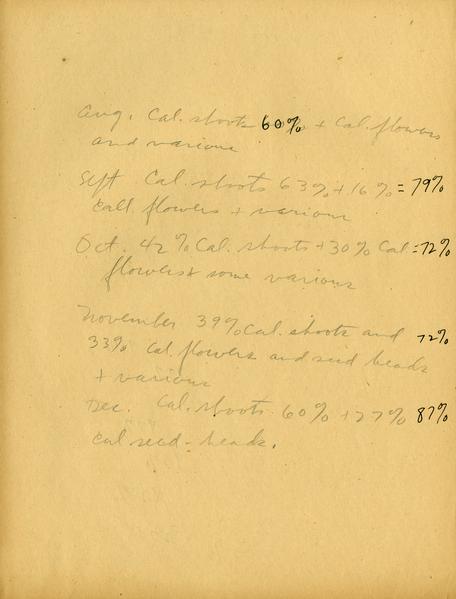 Aug. Cal. shoots 60% + Cal. flowers
and various
Sept Cal. shoots 63% + 16% = 79%
Call. flowers + various
Oct. 42% Cal. shoots + 30% Cal. = 72%
flowers & some various
November 39% Cal. shoots and 72%
33% Cal flowers and seed heads
+ various
Dec. Cal. shoots 60% + 27% 87%
Cal seed-heads.